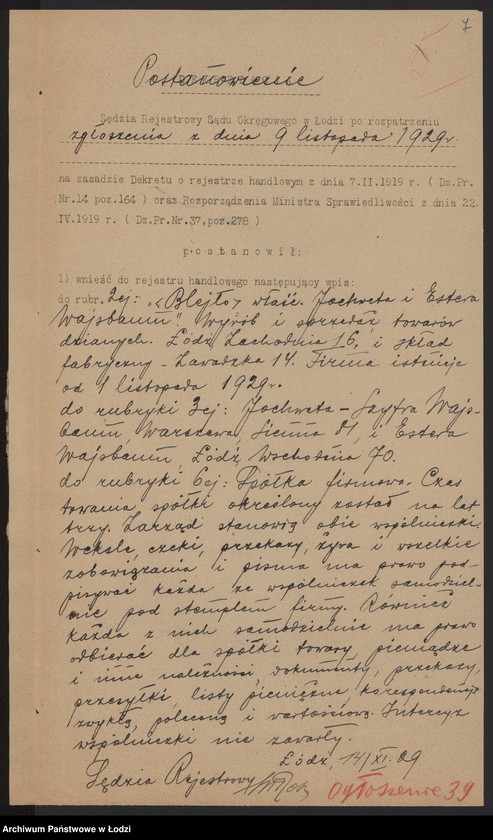 7
Postanowienie
Sędzia Rejestrowy Sądu Okręgowego w Łodzi po rozpatrzeniu
zgłoszenia z dnia 9 listopada 1929r.
na zasadzie Dekretu o rejestrze handlowym z dnia 7.II.1919 r. ( Dz.Pr.
Nr.14 poz.164 ) oraz Rozporządzenia Ministra Sprawiedliwości z dnia 22.
IV.1919 r. ( Dz.Pr.Nr.37,poz.278 )
postanowił:
1) wnieść do rejestru handlowego następujący wpis:
do rubr. 2ej: „<Blejto> właśc. Jochweta i Estera
Wajsbaum". Wyrób i sprzedaż towarów
dzianych. Łódź Zachodnia 16, i skład
fabryczny - Zawadzka 14. Firma istnieje
od 1 listopada 1929r.
do rubryki 3ej: Jochweta - Szyfra Wajs-
baum, Warszawa, Sienna 81, i Estera
Wajsbaum, Łódź, Wschodnia 70.
do rubryki 6ej: Spółka firmowa. Czas
trwania spółki określony został na lat
trzy. Zarząd stanowią obie wspólniczki.
Weksle, czeki, przekazy, żyra i wszelkie
zobowiązania i pisma ma prawo pod-
pisywać każda ze wspólniczek samodziel-
nie pod stemplem firmy. Również
każda z nich samodzielnie ma prawo
odbierać dla spółki towary, pieniądze
i inne należności, dokumenty, przekazy,
przesyłki, listy pieniężne, korespondencję
zwykłą, poleconą i wartościową. Intercyz
wspólniczki nie zawarły.
Łódź, 14/XI.29
Sędzia Rejestrowy
Ogłoszenie 39
Archiwum Państwowe w Łodzi